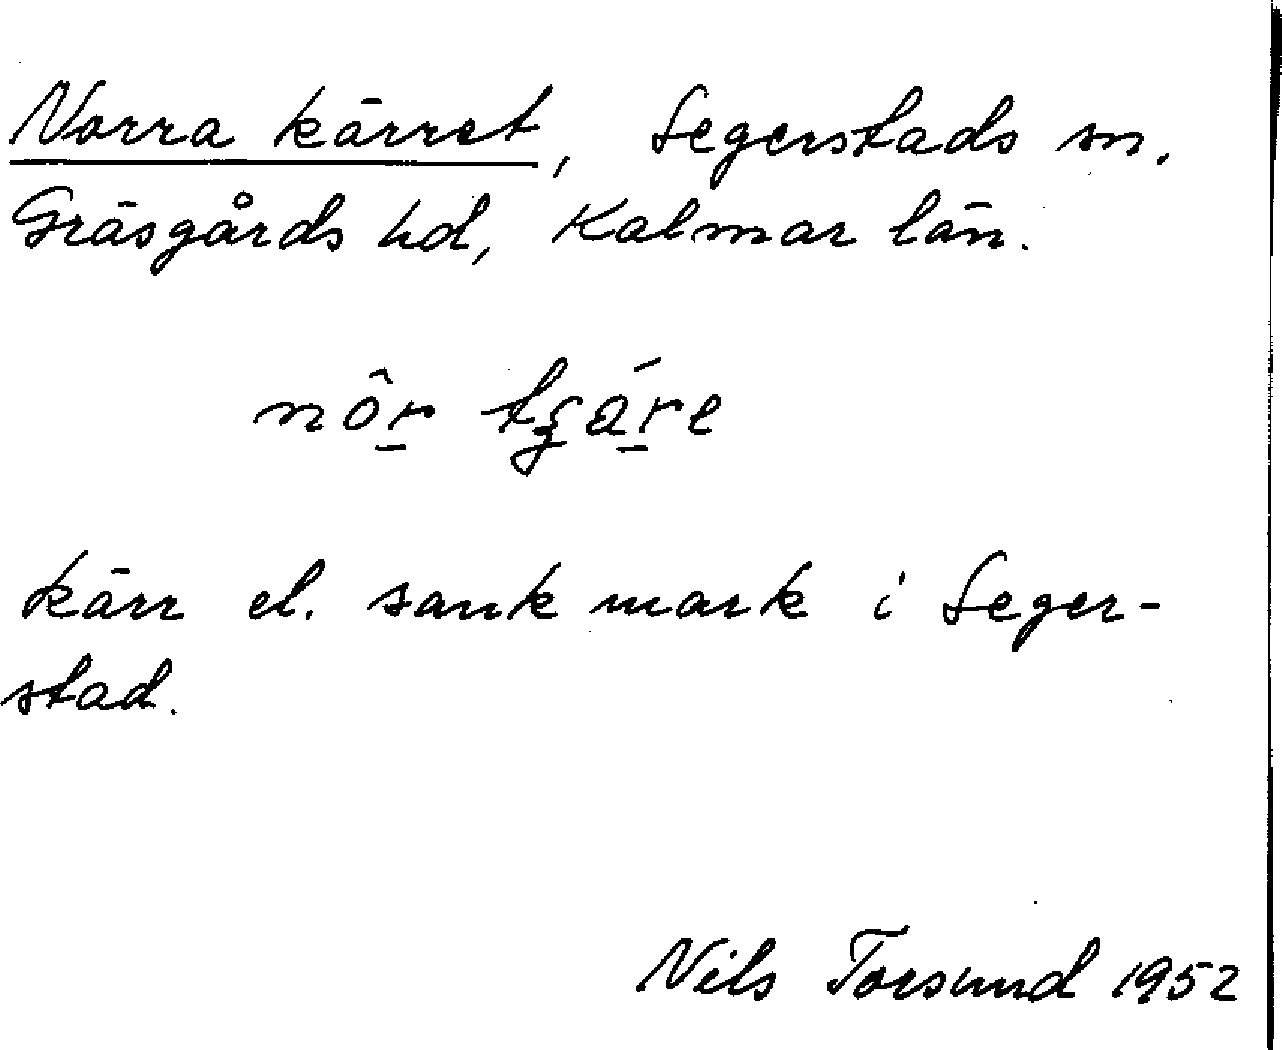 Norra kärret, Segerstads sn.
Gräsgårds hd, Kalmar län.
nôr̲ tʒár̲e
kärr el. sank mark i Seger-
stad.
Nils Torsund 1952